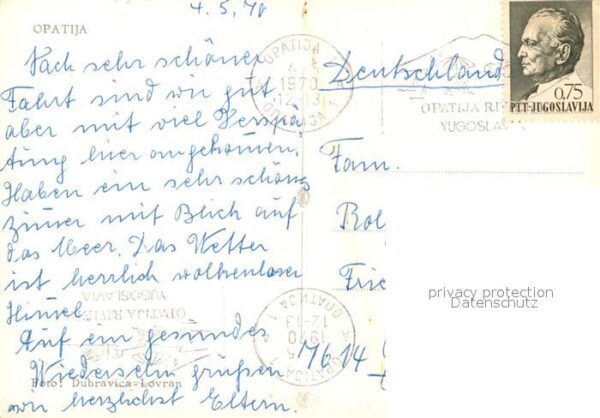 4.5.70
OPATIJA
Nach sehr schöner
Fahrt sind wir gut,
aber mit viel Verspä
tung hier angekommen.
Haben ein sehr schönes
Zimmer mit Blick auf
das Meer. Das Wetter
ist herrlich wolkenloser
Himmel
Auf ein gesundes
Wiedersehn grüßen
wir herzlichst Eltern.
Foto: Dubravica-Lovran
OPATIJA
1970
12-13
OPATIJA RIV
YUGOSLAV
0,75
PTT-JUGOSLAVIJA
Deutschland
Fam.
Rol
Frie
7614
privacy protection
Datenschutz
OPATIJA RIVIE
YUGOSLAVIA
OPATIJA 1
1970
12-13